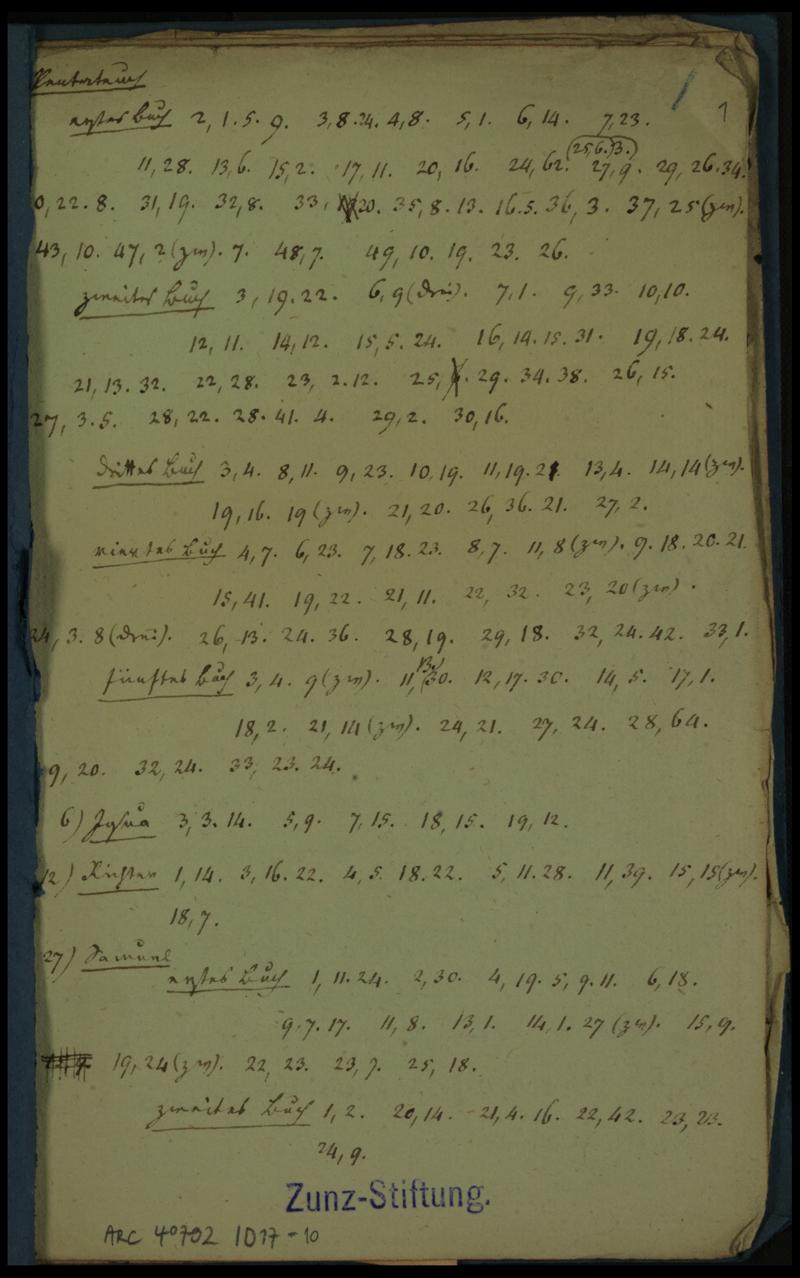 Pentateuch 1
erstes Buch 2, 1. 5. 9. 3, 8. 24. 4, 8. 5, 1. 6, 14. 7, 23.
11, 28. 13, 6. 15, 2. 17, 11. 20, 16. 24, 62. (25, 6. 13.) 27, 9. 29, 26. 34.
0, 22. 8. 31, 19. 32, 8. 33, 20. 35, 8. 13. 16. 5. 36, 3. 37, 25 (zw).
43, 10. 47, 2 (zw). 7. 48, 7. 49, 10. 19. 23. 26.
zweites Buch 3, 19. 22. 6, 9 (drei). 7, 1. 9, 33. 10, 10.
12, 11. 14, 12. 15, 5. 24. 16, 14. 15. 31. 19, 18. 24.
21, 13. 32. 22, 28. 23, 2. 12. 25, 29. 34. 38. 26, 15.
27, 3. 5. 28, 22. 28. 41. 4. 29, 2. 30, 16.
drittes Buch 3, 4. 8, 11. 9, 23. 10, 19. 11, 19. 21. 13, 4. 14, 14 (zw).
19, 16. 19 (zw). 21, 20. 26, 36. 21. 27, 2.
viertes Buch 4, 7. 6, 23. 7, 18. 23. 8, 7. 11, 8 (zw). 9. 18. 20. 21.
15, 41. 19, 22. 21, 11. 22, 32. 23, 20 (zw).
24, 3. 8 (drei). 26, 13. 24. 36. 28, 19. 29, 18. 32, 24. 42. 33, 1.
fünftes Buch 3, 4. 9 (zw). 11, 30. 12, 17. 30. 14, 5. 17, 1.
18, 2. 21, 14 (zw). 24, 21. 27, 24. 28, 64.
9, 20. 32, 24. 33, 23. 24.
6) Josua 3, 3. 14. 5, 9. 7, 15. 18, 15. 19, 12.
12) Richter 1, 14. 3, 16. 22. 4, 5. 18. 22. 5, 11. 28. 11, 39. 15, 15 (zw).
18, 7.
27) Samuel
erstes Buch 1, 11. 24. 2, 30. 4, 19. 5, 9. 11. 6, 18.
9, 7. 17. 11, 8. 13, 1. 14, 1. 27 (zw). 15, 9.
19, 24 (zw). 22, 23. 23, 7. 25, 18.
zweites Buch 1, 2. 20, 14. 21, 4. 16. 22, 42. 23, 23.
24, 9.
Zunz-Stiftung.
ARC 4°792 / D17-10